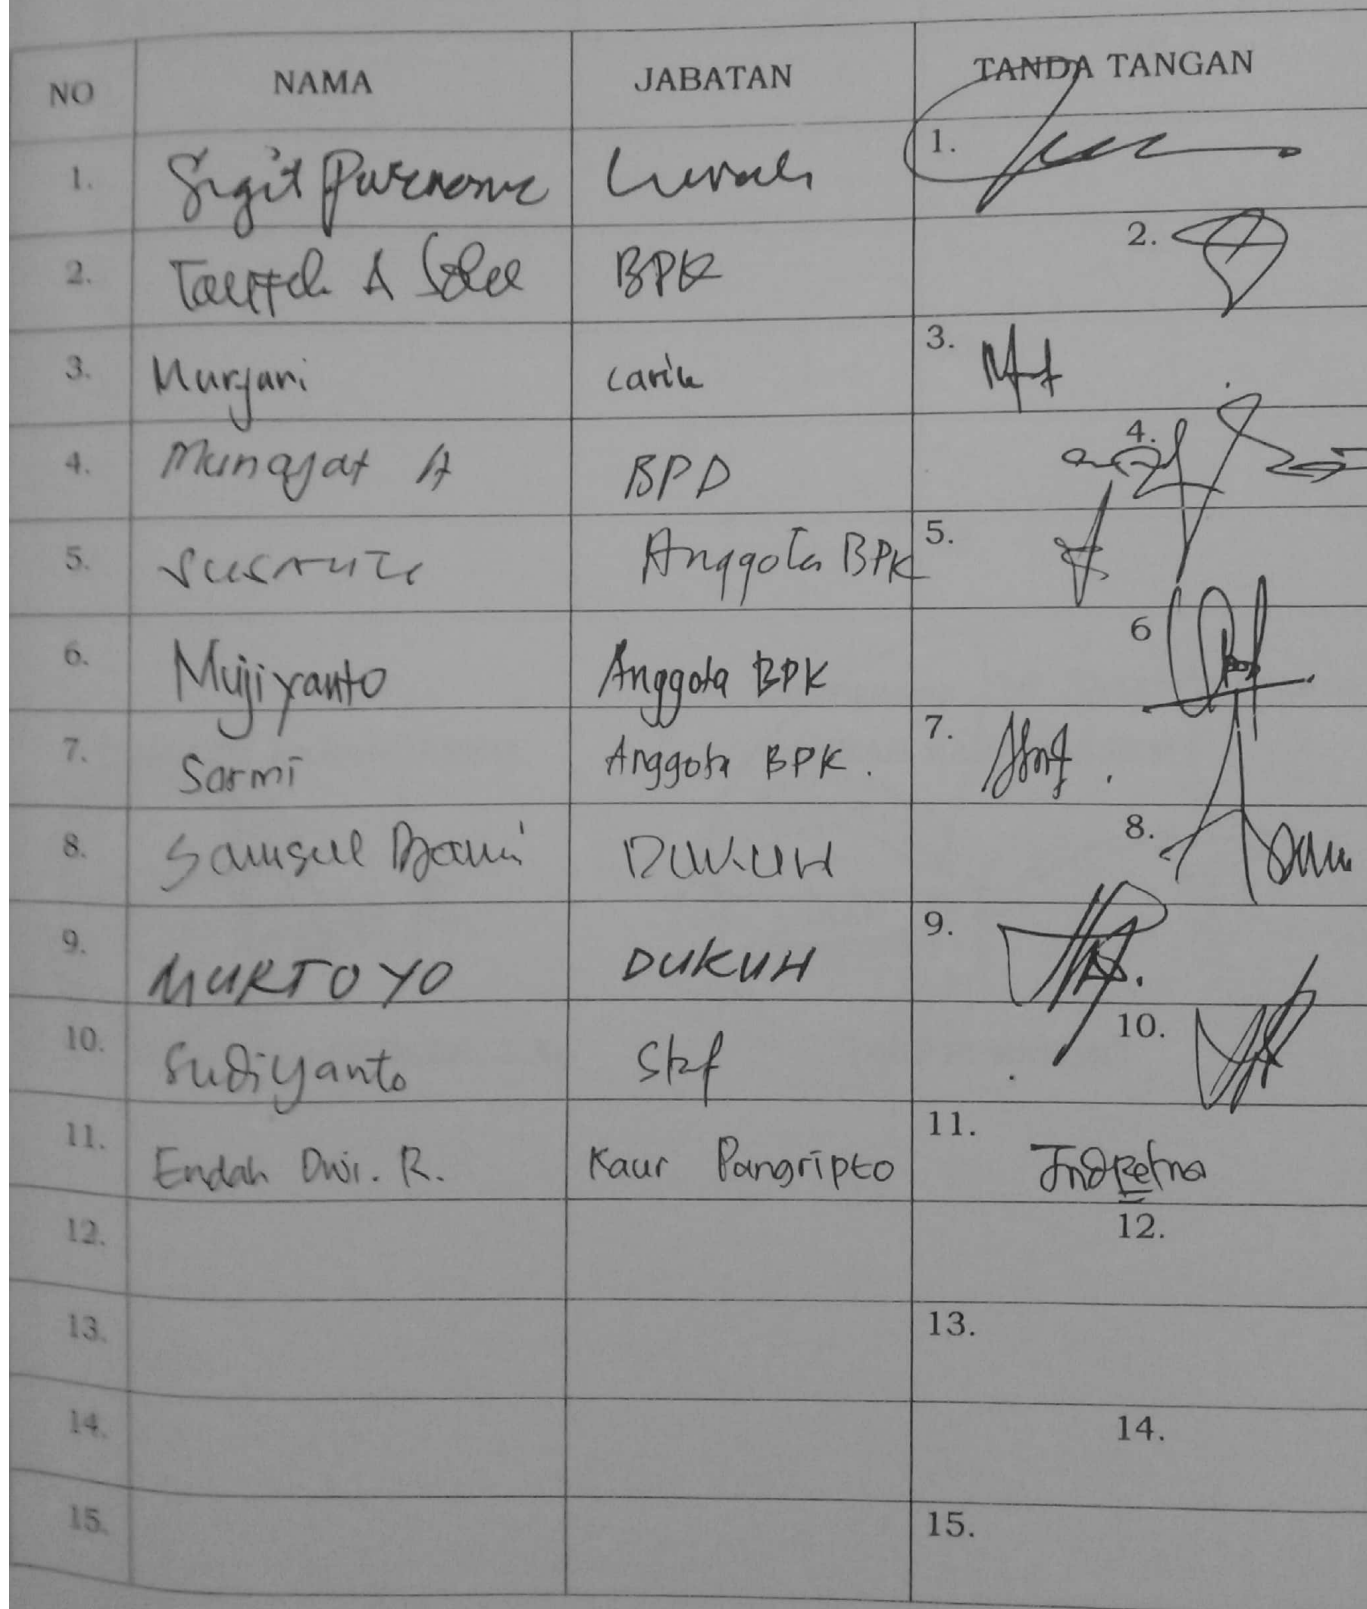 NO NAMA JABATAN TANDA TANGAN
1. Sigit Purnomo Lurah 1.
2. A BPK 2.
3. Murjani Carik 3.
4. Munajat A BPD 4.
5. Anggota BPK 5.
6. Mujiyanto Anggota BPK 6
7. Sarmi Anggota BPK. 7.
8. Samsul DUKUH 8.
9. MURTOYO DUKUH 9.
10. Sudiyanto Staf 10.
11. Endah Dwi. R. Kaur Pangripto 11.
12. 12.
13. 13.
14. 14.
15. 15.